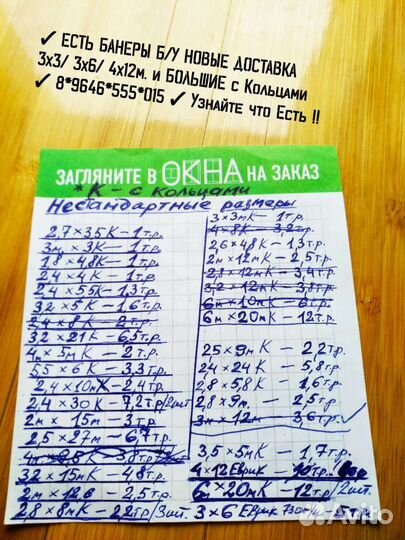 ✓ ЕСТЬ БАНЕРЫ Б/У НОВЫЕ ДОСТАВКА
3х3/ 3х6/ 4х12м. и БОЛЬШИЕ с Кольцами
✓ 8*9646*555*015 ✓ Узнайте что Есть !!
ЗАГЛЯНИТЕ В ОКНА НА ЗАКАЗ
*К – с кольцами
Нестандартные размеры
2,7×3,5К – 1т.р.
3м × 3К – 1т.р.
1,8 × 4,8К – 1т.р.
2,4 × 4К – 1т.р.
2,4 × 5,5К – 1,3т.р.
3,2 × 5К – 1,6т.р.
2,4 × 8К – 2т.р.
3,2 × 21К – 6,5т.р.
4м × 5мК – 2т.р.
5,5 × 6К – 3,3т.р.
2,4 × 10мК – 2,4т.р.
2,4 × 30К – 7,2т.р/2шт
2м × 15м – 3т.р.
2,5 × 27м – 6,7т.р.
3,2 × 15мК – 4,8т.р.
2м × 12 – 2,5т.р.
2,8 × 8мК – 2,2т.р/3шт.
3×3мК – 1т.р.
4×8К – 3,2т.р.
2,6 × 4,8К – 1,3т.р.
2м × 12мК – 2,5т.р.
2,8 × 12мК – 3,4т.р.
3,2 × 12мК – 3,8т.р.
6м × 10мК – 6т.р.
6м × 20мК – 12т.р.
2,5 × 9мК – 2,2т.р.
24 × 24К – 5,8т.р.
2,8 × 5,8К – 1,6т.р.
2,8 × 9м. – 2,5т.р.
3м × 12м – 3,6т.р.
3,5 × 5мК – 1,7т.р.
4 × 12 Еврик – 10т.р.
6м × 20мК – 12т.р/2шт.
3 × 6 Еврик
Avito